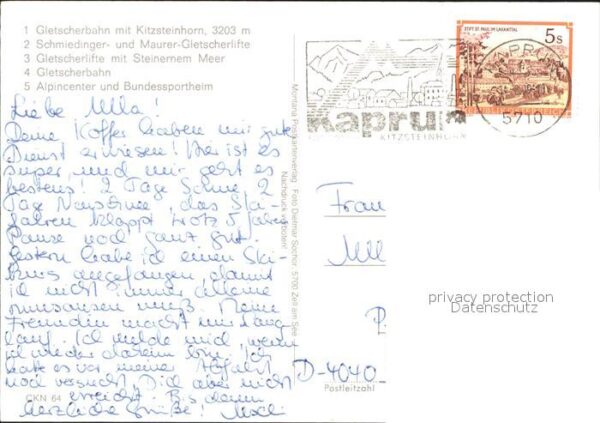 1 Gletscherbahn mit Kitzsteinhorn, 3203 m
2 Schmiedinger- und Maurer-Gletscherlifte
3 Gletscherlifte mit Steinernem Meer
4 Gletscherbahn
5 Alpincenter und Bundessportheim
Liebe Ulla!
Deine Koffer haben mir gute
Dienst erwiesen! Hier ist es
super, und mir geht es
bestens! 2 Tage Sonne, 2
Tage, das Ski-
fahren klappt trotz 5 Jahren
Pause noch ganz gut.
Gestern habe ich einen Ski-
kurs angefangen damit
ich nicht immer alleine
rumsausen muß. Meine
Freundin macht nur Lang
lauf. Ich melde mich, wenn
ich wieder daheim bin. Ich
hatte es vor meiner Abfahrt
noch versucht, Dich aber nicht
erreicht. Bis dann
herzliche Grüße!
CKN 64
Montana Postkartenverlag Foto Dietmar Sochor, 5700 Zell am See
Nachdruck verboten!
Kaprun
KITZSTEINHORN
STIFT ST. PAUL IM LAVANTTAL
5s
5710
Frau
Ull
privacy protection
Datenschutz
D-4040
Postleitzahl